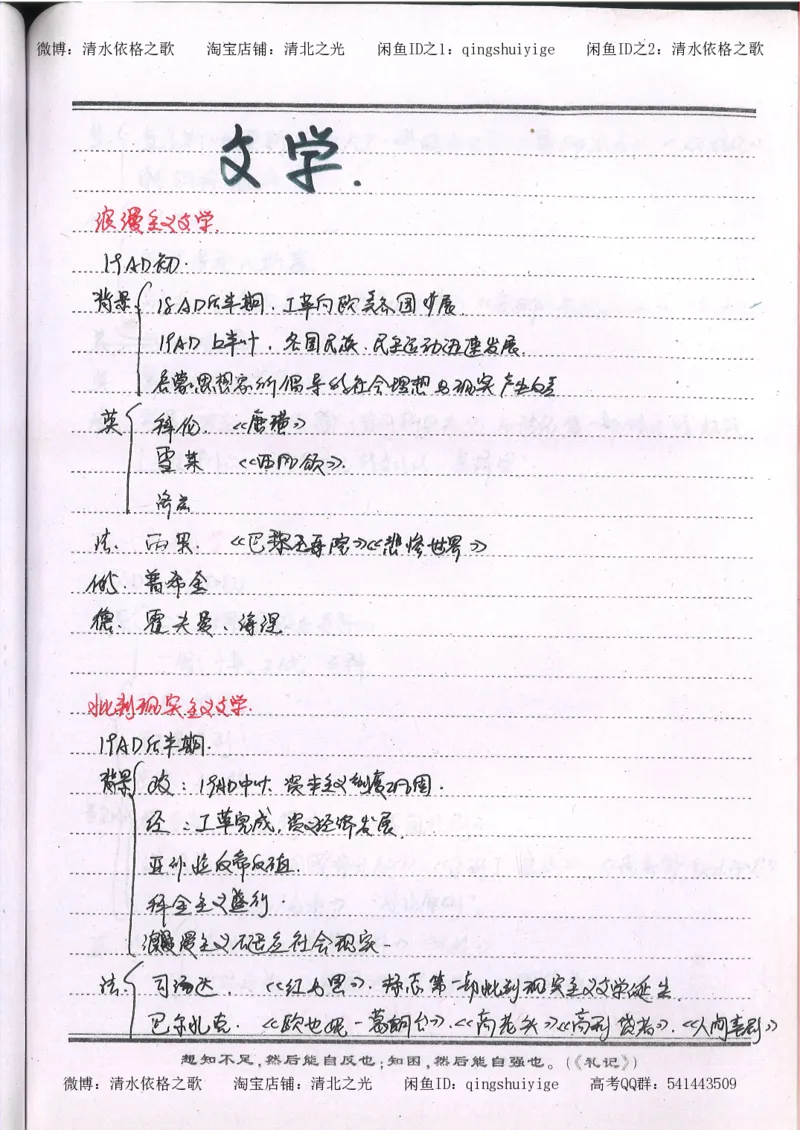 微博：清水依格之歌 淘宝店铺：清北之光 闲鱼ID之1：qingshuiyige 闲鱼ID之2：清水依格之歌
文学.
浪漫主义文学.
19AD初.
背景 18AD后半期.工革向欧美各国扩展
19AD上半叶.各国民族.民主运动迅速发展.
启蒙思想家所倡导的社会理想与现实产生
英 拜伦.《唐璜》
雪莱 《西风颂》.
济慈
法. 雨果. 《巴黎圣母院》《悲惨世界》
俄. 普希金
德. 霍夫曼、海涅.
批判现实主义文学.
19AD后半期.
背景 政：19AD中叶.资本主义制度巩固.
经：工革完成,资义经济发展.
亚非拉反帝反殖.
拜金主义盛行.
浪漫主义不适应社会现实-
法. 司汤达. 《红与黑》.标志第一部批判现实主义文学诞生.
巴尔扎克. 《欧也妮-葛朗台》.《高老头》《高利贷者》.《人间喜剧》
想知不足,然后能自反也;知困,然后能自强也。(《礼记》)
微博：清水依格之歌 淘宝店铺：清北之光 闲鱼ID：qingshuiyige 高考QQ群：541443509